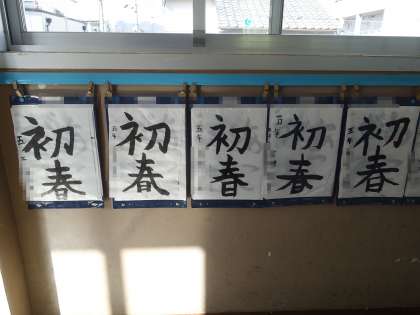 初春
五年
初春
五年
初春
五年
初春
五年
初春